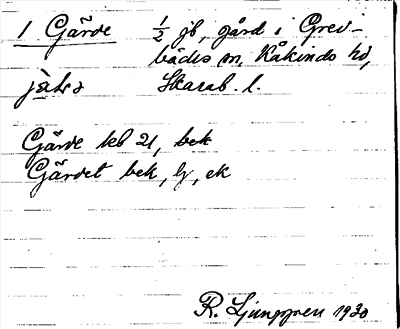 1 Gärde ½ jb, gård i Grev-
bäcks sn, Kåkinds hd,
Skarab. l.
Gärde kb 21, bek
Gärdet bek, ly, ek
R. Ljunggren 1930